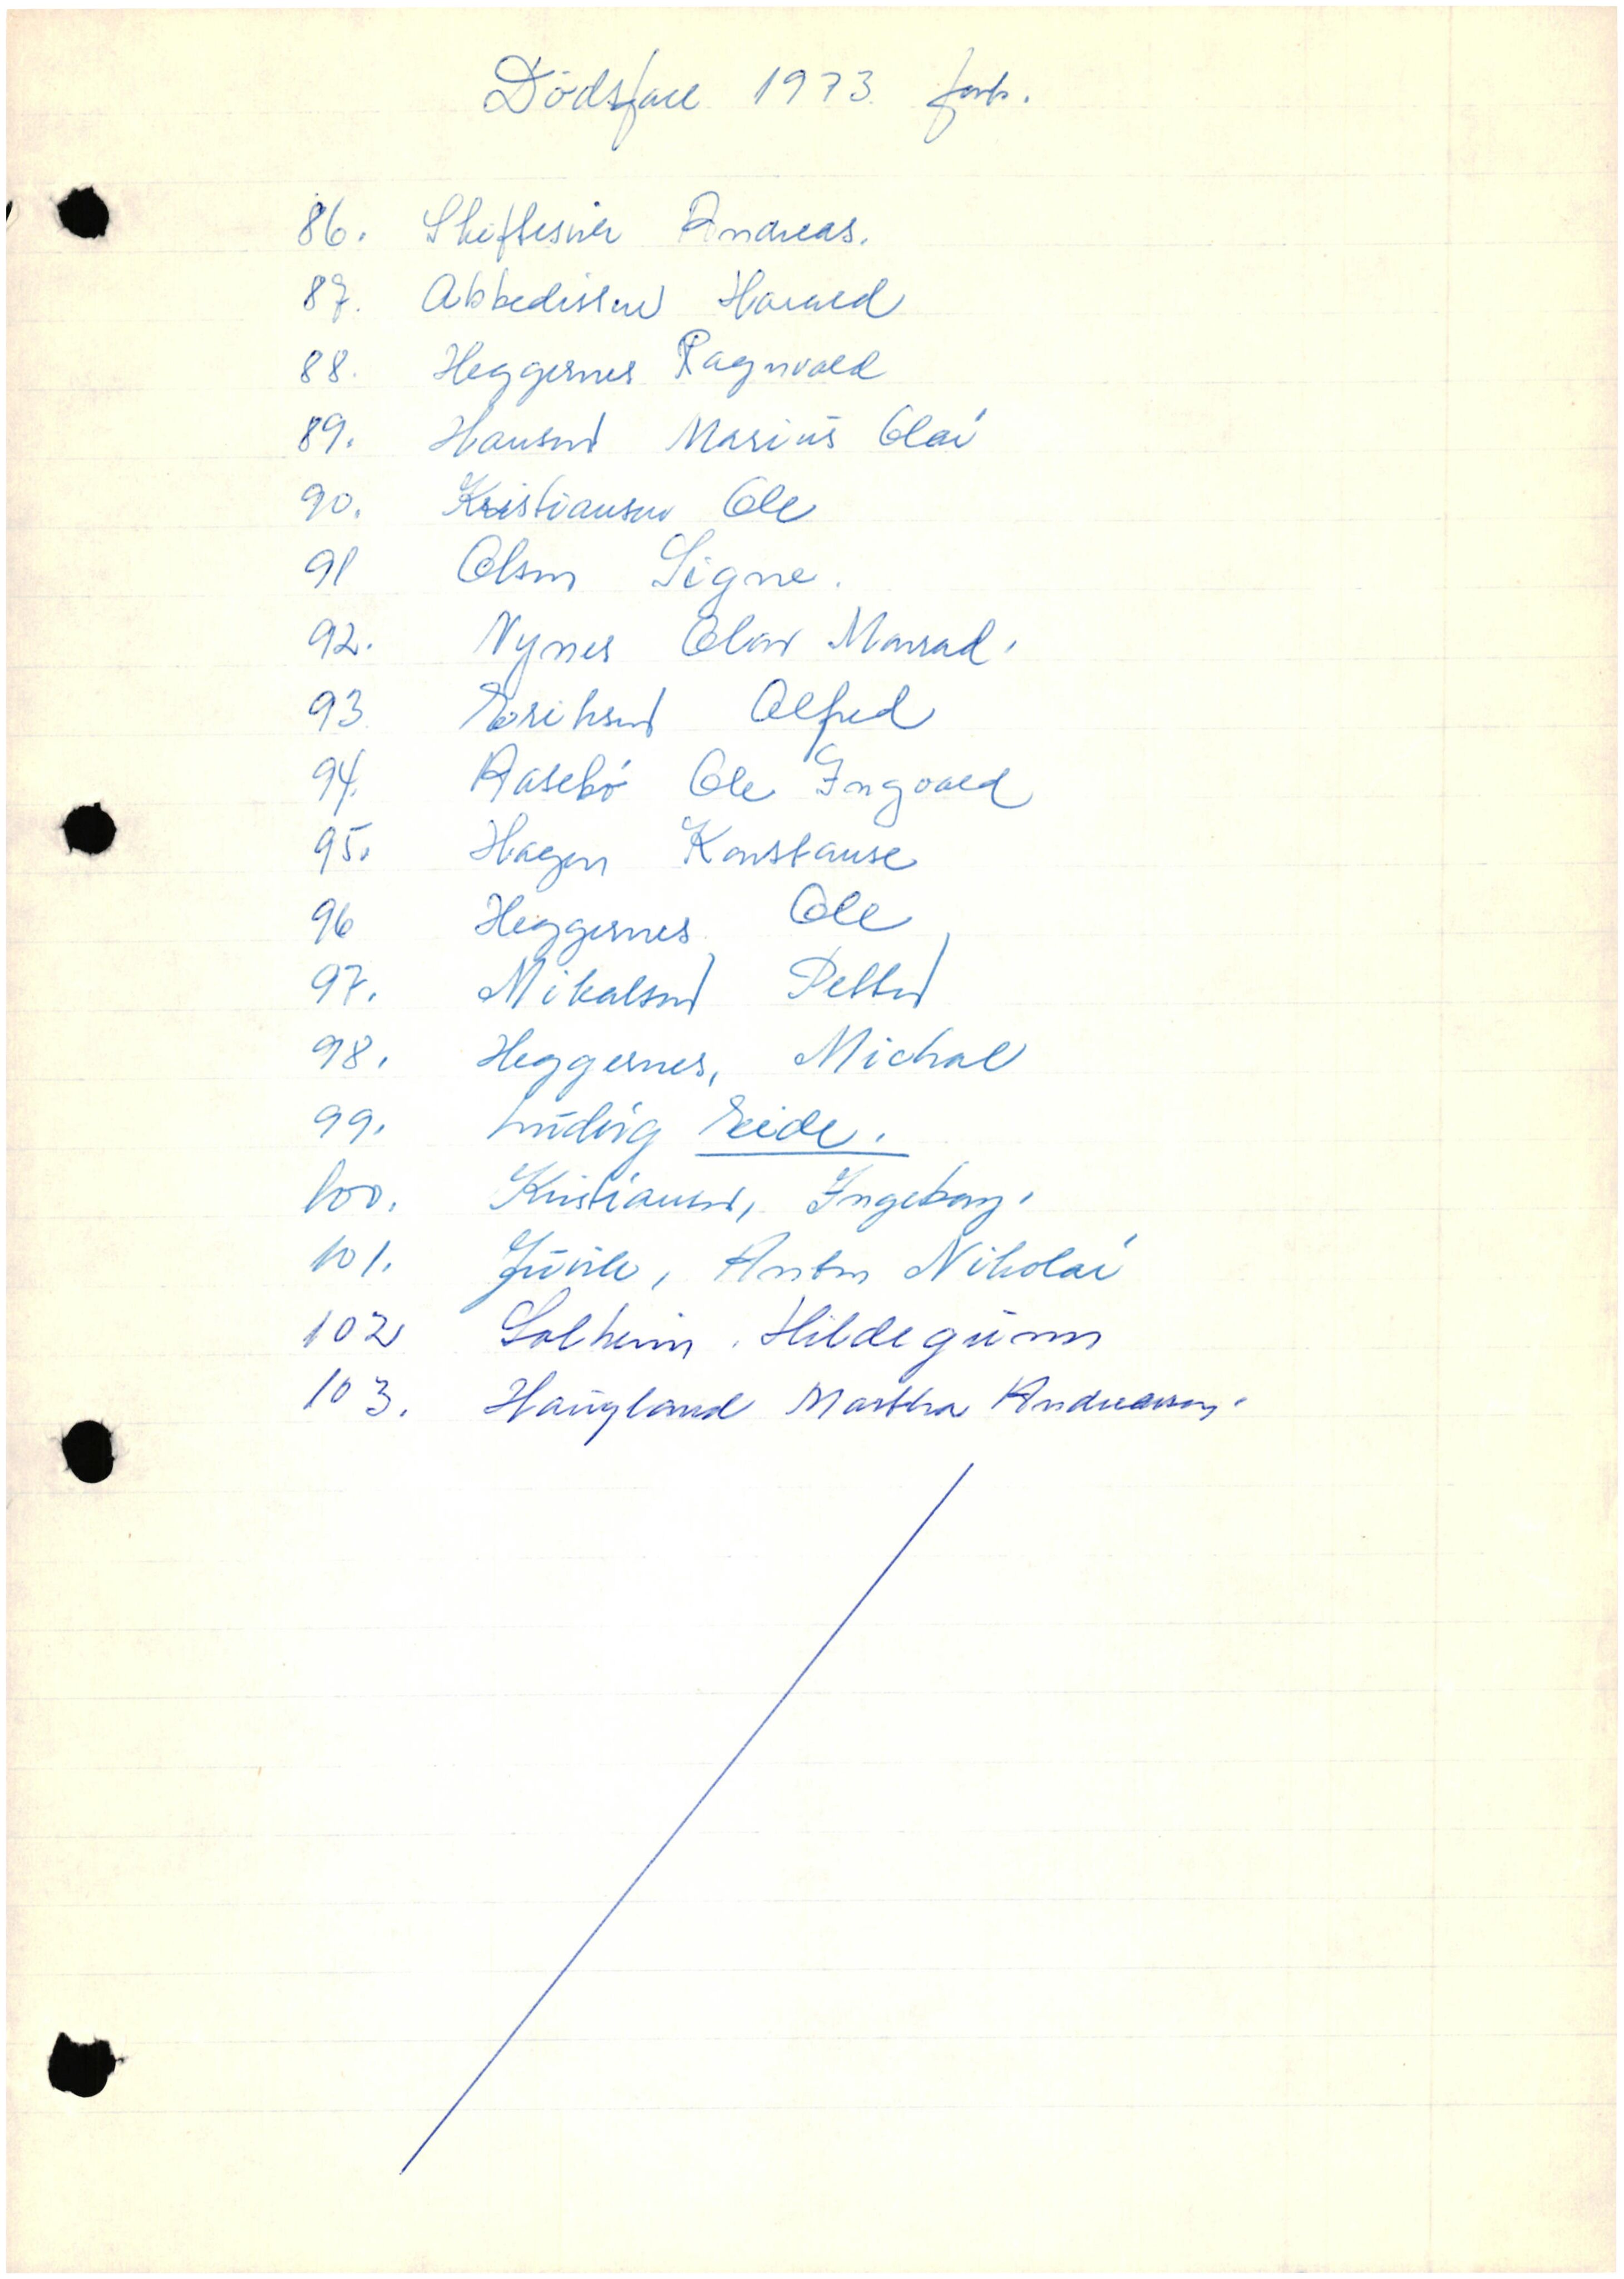 Dödsfall 1973 forts.
86. Skiftesvik Andreas.
87. Abbedissen Harald
88. Heggernes Ragnvald
89. Hansen Marius Olai
90. Kristiansen Ole
91 Olsen Signe.
92. Nynes Olav Monrad.
93 Eriksen Alfred
94. Rasebö Ole Ingvald
95. Hagen Konstanse
96 Heggernes Ole
97. Mikalsen Petter
98. Heggernes, Michal
99. Ludvig Eide.
100. Kristiansen, Ingeborg.
101. Juvik, Anton Nikolai
102 Solheim. Hildegunn
103. Haugland Martha